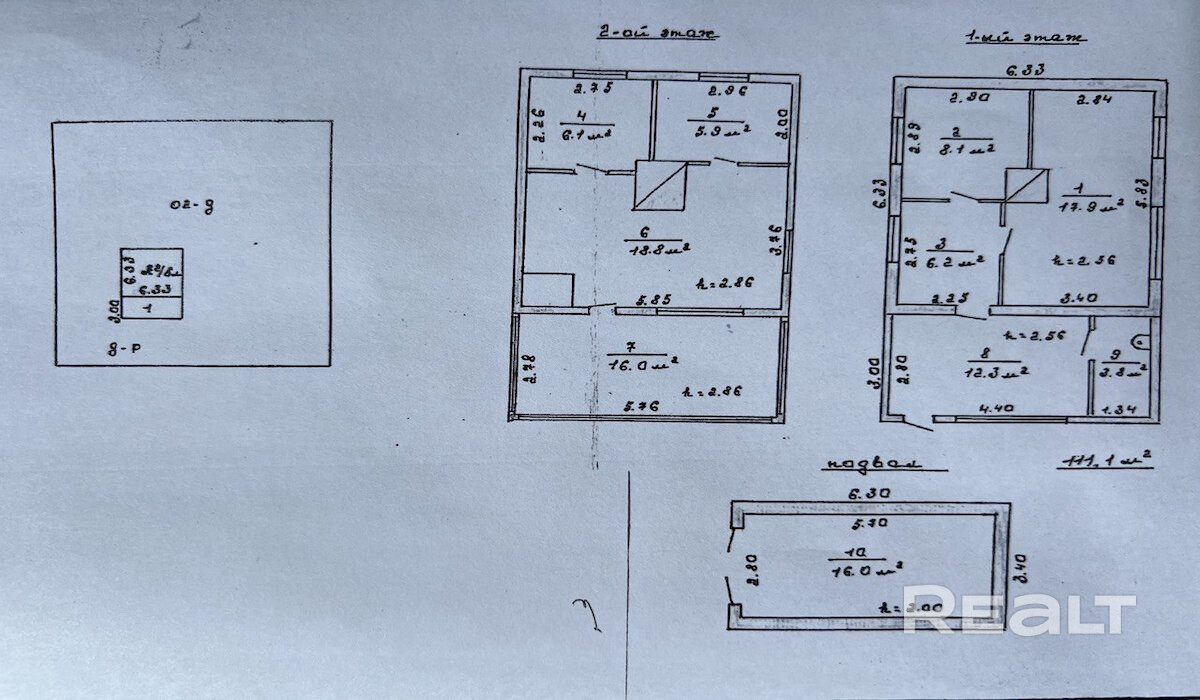 2-ой этаж
1-ый этаж
6.33
2.75
2.96
2.90
2.84
2.26
4
6.1 м²
5
5.9 м²
2.00
2.89
2
8.1 м²
1
17.9 м²
5.83
6.33
ог-д
6.33
6.33
3.00
1
д-р
6
18.8 м²
3.76
h=2.86
5.85
2.75
3
6.2 м²
h=2.56
2.25
3.40
7
16.0 м²
2.78
h=2.86
5.76
h=2.56
8
12.3 м²
9
3.8 м²
3.00
2.80
4.40
1.34
подвал
111.1 м²
6.30
5.70
10
16.0 м²
2.80
3.40
h=2.00
Realt